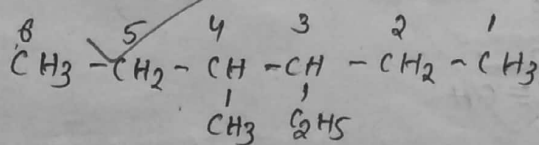 6 5 4 3 2 1
CH3 - CH2 - CH - CH - CH2 - CH3
CH3 C2H5